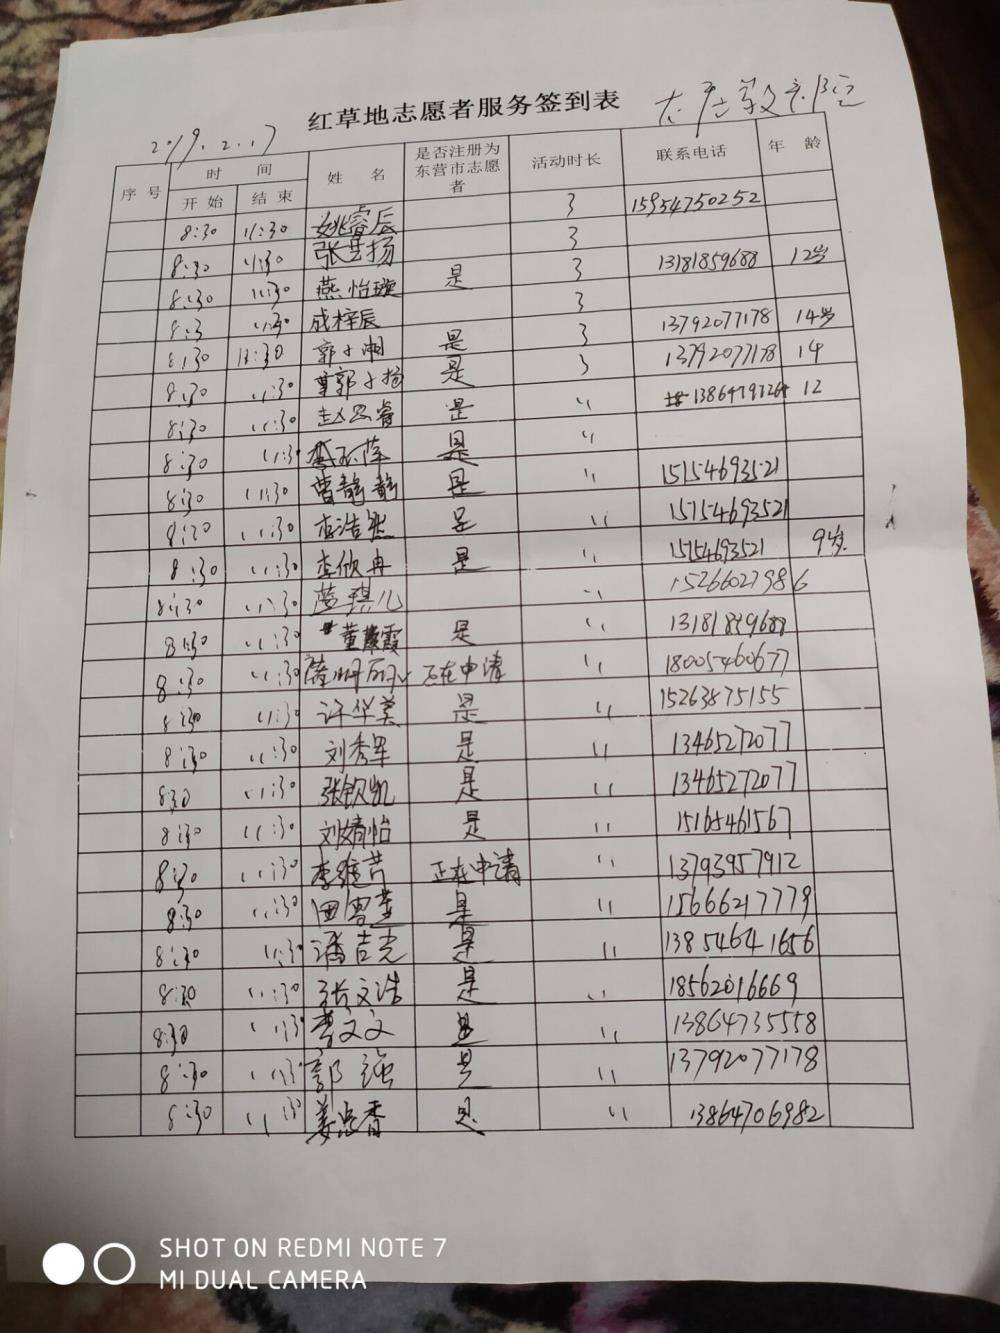 红草地志愿者服务签到表
2019.2.17
序号 时间 姓名 是否注册为东营市志愿者 活动时长 联系电话 年龄
开始 结束
8:30 11:30 姚睿辰 3 15954750252
8:30 11:30 张芸扬 3
8:30 11:30 燕怡璇 是 3 13181859688 12岁
8:3 11:30 成梓辰 3
8:30 11:30 郭小湘 是 3 13792077178 14岁
8:30 11:30 郭小扬 是 3 13792077178 14
8:30 11:30 赵思睿 是 〃 12
8:30 11:30 是 〃
8:30 11:30 曹静静 是 〃 15154693521
8:30 11:30 李浩然 是 〃 15154693521
8:30 11:30 李欣冉 是 〃 15154693521 9岁
8:30 11:30 琪儿 〃 15266027986
8:30 11:30 董馨霞 是 〃 13181859688
8:30 11:30 正在申请 〃 18005460677
8:30 11:30 许华美 是 〃 15263875155
8:30 11:30 刘秀军 是 〃 13465272077
8:30 11:30 张钦凯 是 〃 13465272077
8:30 11:30 刘婧怡 是 〃 15165461567
8:30 11:30 李维芹 正在申请 〃 13793957912
8:30 11:30 田 是 〃 15666217779
8:30 11:30 潘吉光 是 〃 13854641656
8:30 11:30 张文浩 是 〃 18562016669
8:30 11:30 李文文 是 〃 13864735558
8:30 11:30 郭强 是 〃 13792077178
8:30 11:30 姜忠香 是 〃 13864706982
SHOT ON REDMI NOTE 7
MI DUAL CAMERA